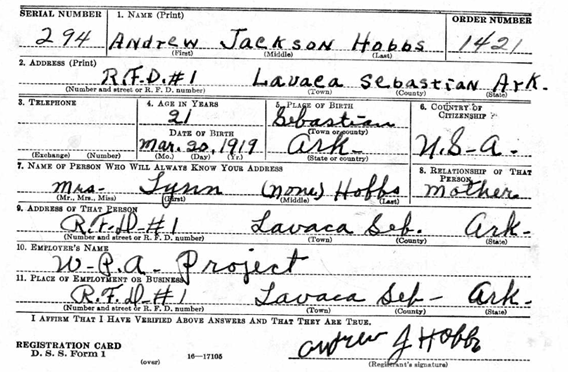 SERIAL NUMBER 1. NAME (Print) ORDER NUMBER
294 ANDREW JACKSON HOBBS 1421
(First) (Middle) (Last)
2. ADDRESS (Print)
R.F.D.#1 LAVACA SEBASTIAN ARK.
(Number and street or R. F. D. number) (Town) (County) (State)
3. TELEPHONE 4. AGE IN YEARS 5. PLACE OF BIRTH 6. COUNTRY OF CITIZENSHIP
21 Sebastian
DATE OF BIRTH (Town or county)
Mar. 20, 1919 Ark- U.S-A.
(Exchange) (Number) (Mo.) (Day) (Yr.) (State or country)
7. NAME OF PERSON WHO WILL ALWAYS KNOW YOUR ADDRESS 8. RELATIONSHIP OF THAT PERSON
Mrs- Lynn (none) Hobbs Mother
(Mr., Mrs., Miss) (First) (Middle) (Last)
9. ADDRESS OF THAT PERSON
R.F.D-#1 Lavaca Seb. Ark.
(Number and street or R. F. D. number) (Town) (County) (State)
10. EMPLOYER'S NAME
W-P.A- Project
11. PLACE OF EMPLOYMENT OR BUSINESS
R.F.D-#1 Lavaca Seb- Ark.
(Number and street or R. F. D. number) (Town) (County) (State)
I AFFIRM THAT I HAVE VERIFIED ABOVE ANSWERS AND THAT THEY ARE TRUE.
REGISTRATION CARD
D. S. S. Form 1 (over) 16—17105 Andrew J Hobbs
(Registrant's signature)